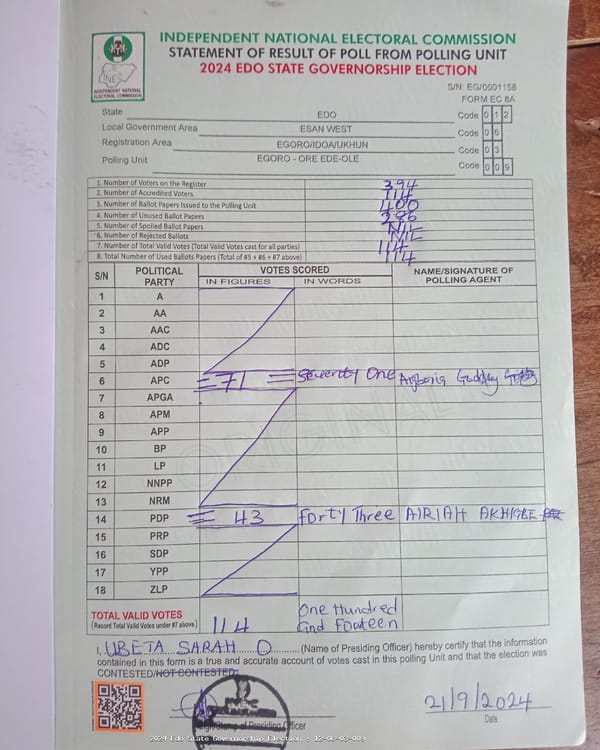 INDEPENDENT NATIONAL ELECTORAL COMMISSION
STATEMENT OF RESULT OF POLL FROM POLLING UNIT
2024 EDO STATE GOVERNORSHIP ELECTION
INEC
INDEPENDENT NATIONAL ELECTORAL COMMISSION
S/N: EG/0001158
FORM EC 8A
State EDO Code 0 1 2
Local Government Area ESAN WEST Code 0 6
Registration Area EGORO/IDOA/UKHUN Code 0 3
Polling Unit EGORO - ORE EDE-OLE Code 0 0 9
1. Number of Voters on the Register 394
2. Number of Accredited Voters 114
3. Number of Ballot Papers Issued to the Polling Unit 400
4. Number of Unused Ballot Papers 286
5. Number of Spoiled Ballot Papers NIL
6. Number of Rejected Ballots NIL
7. Number of Total Valid Votes (Total Valid Votes cast for all parties) 114
8. Total Number of Used Ballots Papers (Total of #5 + #6 + #7 above) 114
S/N POLITICAL PARTY VOTES SCORED NAME/SIGNATURE OF POLLING AGENT
IN FIGURES IN WORDS
1 A
2 AA
3 AAC
4 ADC
5 ADP
6 APC = 71 = Seventy One
7 APGA
8 APM
9 APP
10 BP
11 LP
12 NNPP
13 NRM
14 PDP = 43 Forty Three AIRIAH AKHIGBE
15 PRP
16 SDP
17 YPP
18 ZLP
TOTAL VALID VOTES
(Record Total Valid Votes under #7 above) 114 One Hundred and Fourteen
ORIGINAL
I, UBETA SARAH O (Name of Presiding Officer) hereby certify that the information
contained in this form is a true and accurate account of votes cast in this polling Unit and that the election was
CONTESTED/NOT CONTESTED.
21/9/2024
Stamp of Presiding Officer Date
2024 Edo State Governorship Election : 12-06-03-009